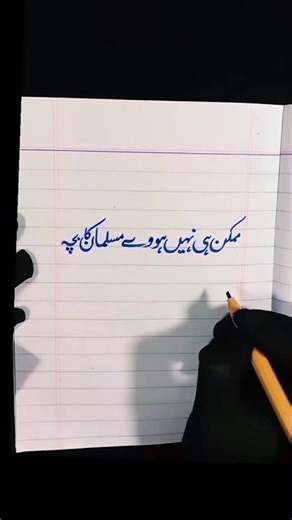 ممکن ہی نہیں ہووے مسلمان کا بچہ